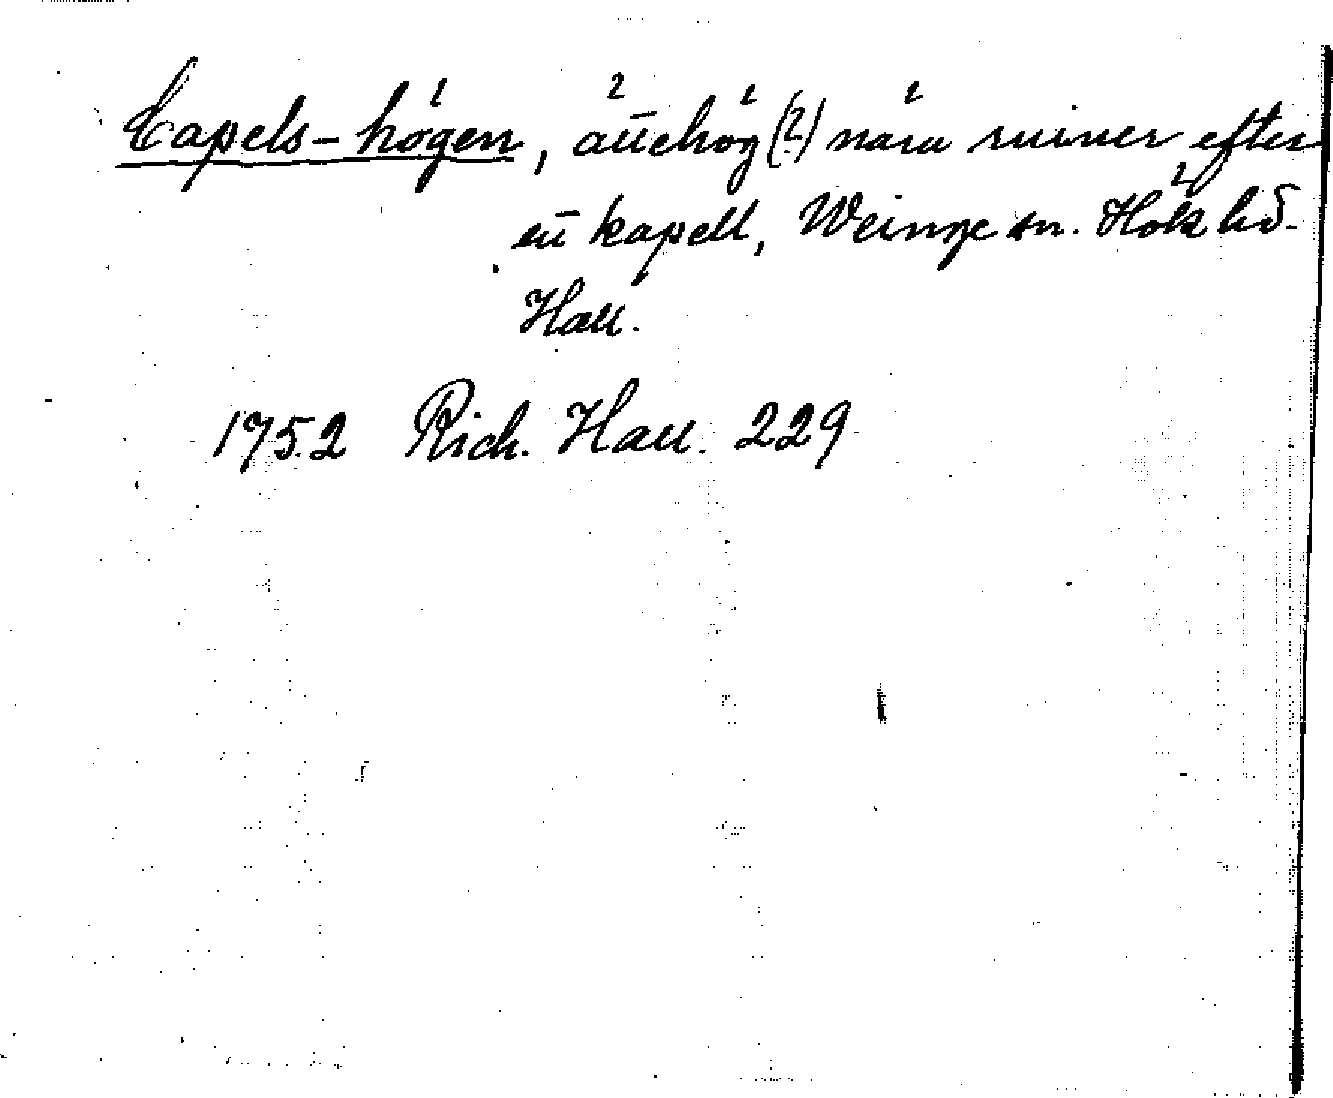 Capels-högen, ättehög (?) nära ruiner efter
ett kapell, Weinge sn. Hök hd.
Hall.
1752 Rich. Hall. 229